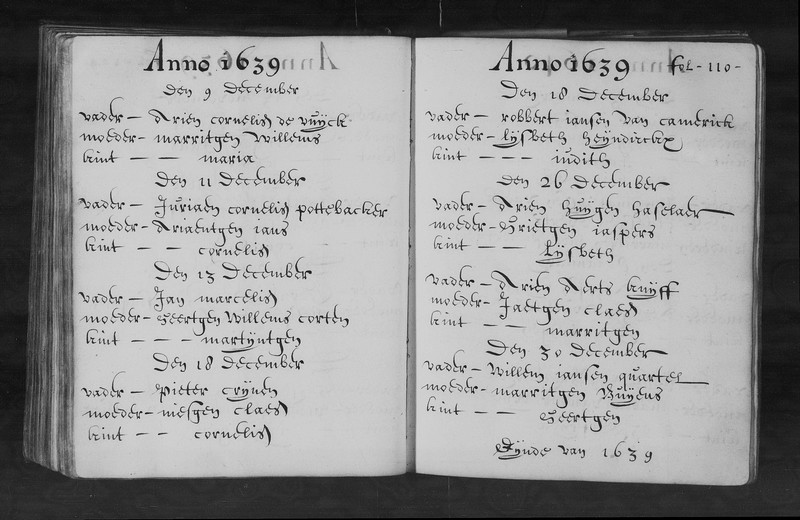 Anno 1639
Den 9 December
vader - Arien cornelis de vuÿck
moeder - marritgen Willems
kint - - maria
Den 11 December
vader - Juriaen cornelis pottebacker
moeder - Ariaentgen jans
kint - - cornelis
Den 13 December
vader - Jan marcelis
moeder - Geertgen Willems corten
kint - - - martÿntgen
Den 18 December
vader - pieter crÿnen
moeder - niesgen claes
kint - - cornelis
Anno 1639 fol - 110 -
Den 18 December
vader - robbert iansen van camerick
moeder - Lÿsbeth heÿndirckx
kint - - - iudith
Den 26 December
vader - Arien huÿgen haselaer
moeder - Grietgen iaspers
kint - - Lÿsbeth
vader - Arien Aerts kuÿff
moeder - Jaetgen claes
kint - - marritgen
Den 30 December
vader - Willem iansen quartel
moeder - marritgen Buÿens
kint - - Geertgen
Eÿnde van 1639